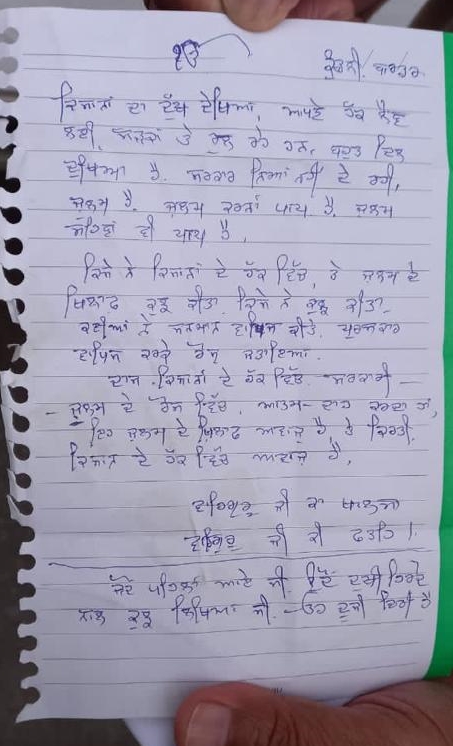 ੴ
ਕੁੰਡਲੀ ਬਾਰਡਰ
ਕਿਸਾਨਾਂ ਦਾ ਦੁੱਖ ਦੇਖਿਆ, ਆਪਣੇ ਹੱਕ ਲੈਣ
ਲਈ, ਸੜਕਾਂ ਤੇ ਰੁਲ ਰਹੇ ਹਨ, ਬਹੁਤ ਦਿਲ
ਦੁਖਿਆ ਹੈ. ਸਰਕਾਰ ਨਿਆਂ ਨਹੀਂ ਦੇ ਰਹੀ,
ਜੁਲਮ ਹੈ. ਜੁਲਮ ਕਰਨਾਂ ਪਾਪ ਹੈ. ਜੁਲਮ
ਸਹਿਣਾਂ ਵੀ ਪਾਪ ਹੈ,
ਕਿਸੇ ਨੇ ਕਿਸਾਨਾਂ ਦੇ ਹੱਕ ਵਿੱਚ, ਤੇ ਜੁਲਮ ਦੇ
ਖਿਲਾਫ ਕੁਝ ਕੀਤਾ. ਕਿਸੇ ਨੇ ਕੁਝ ਕੀਤਾ.
ਕਈਆਂ ਨੇ ਸਨਮਾਨ ਵਾਪਿਸ ਕੀਤੇ, ਪੁਰਸਕਾਰ
ਵਾਪਿਸ ਕਰਕੇ ਰੋਸ ਜਤਾਇਆ.
ਦਾਸ ਕਿਸਾਨਾਂ ਦੇ ਹੱਕ ਵਿੱਚ. ਸਰਕਾਰੀ -
- ਜੁਲਮ ਦੇ ਰੋਸ ਵਿੱਚ, ਆਤਮ-ਦਾਹ ਕਰਦਾ ਹਾਂ,
ਇਹ ਜੁਲਮ ਦੇ ਖਿਲਾਫ ਅਵਾਜ਼ ਹੈ, ਤੇ ਕਿਰਤੀ.
ਕਿਸਾਨ ਦੇ ਹੱਕ ਵਿੱਚ ਆਵਾਜ਼ ਹੈ,
ਵਾਹਿਗੁਰੂ ਜੀ ਕਾ ਖਾਲਸਾ
ਵਾਹਿਗੁਰੂ ਜੀ ਕੀ ਫਤਹਿ।
ਪਹਿਲਾਂ ਆਏ ਸੀ. ਉਦੋਂ ਦੁਖੀ ਹਿਰਦੇ
ਨਾਲ ਕੁਝ ਲਿਖਿਆ ਸੀ. - ਹੈ